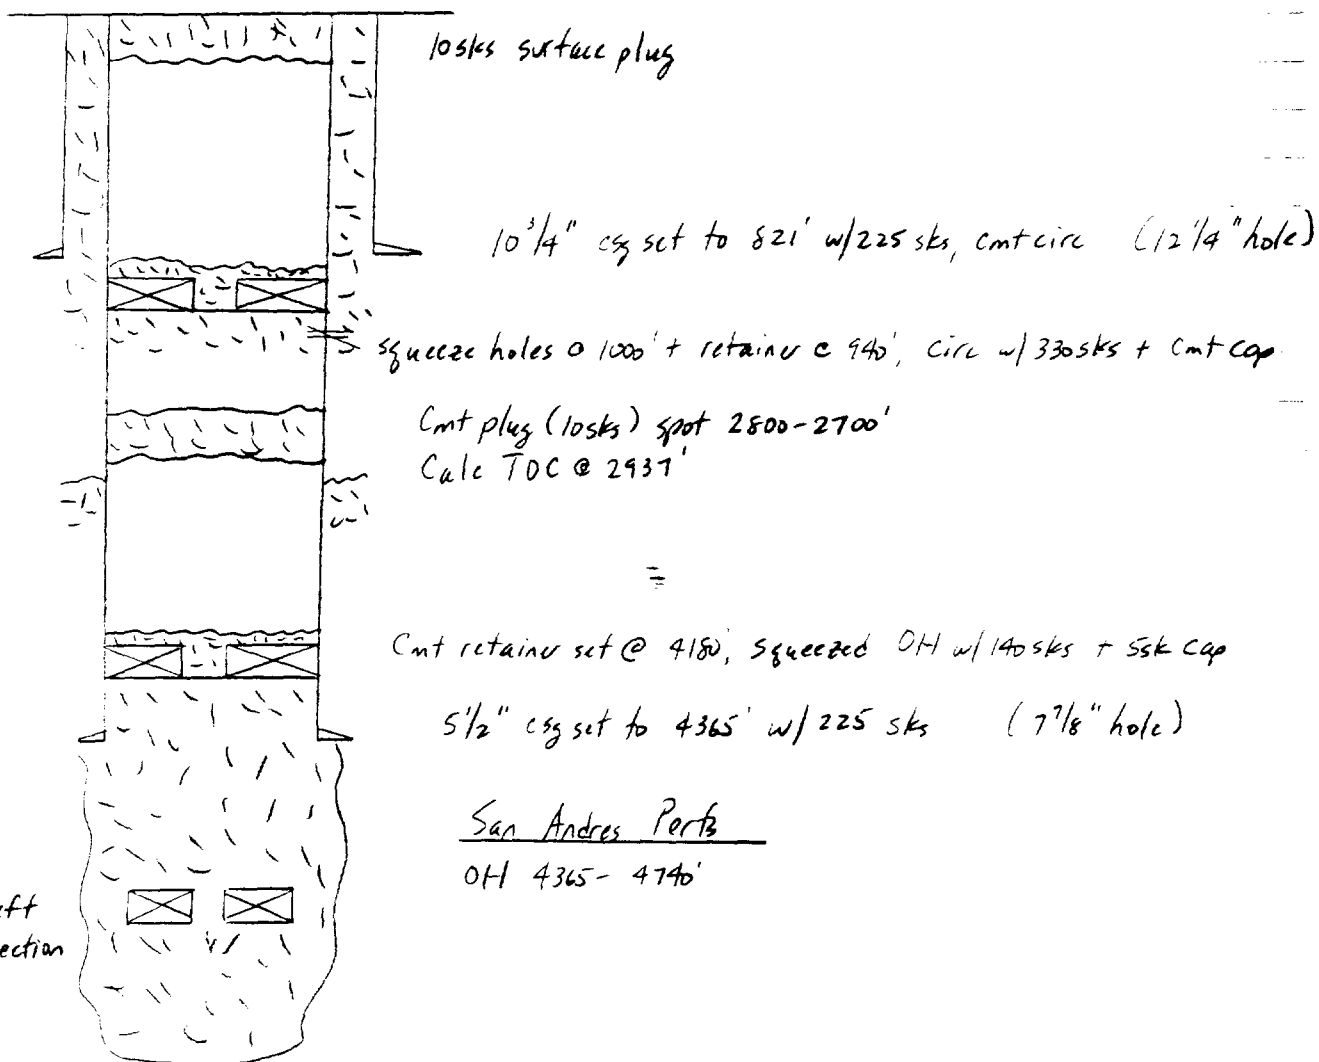 10sks surface plug
10 3/4" csg set to 821' w/225 sks, cmt circ (12 1/4" hole)
squeeze holes @ 1000' + retainer @ 940', circ w/330sks + Cmt cap
Cmt plug (10sks) spot 2800-2700'
Calc TOC @ 2937'
Cmt retainer set @ 4180', squeezed OH w/140sks + 5sk cap
5 1/2" csg set to 4365' w/225 sks (7 7/8" hole)
San Andres Perfs
OH 4365-4740'